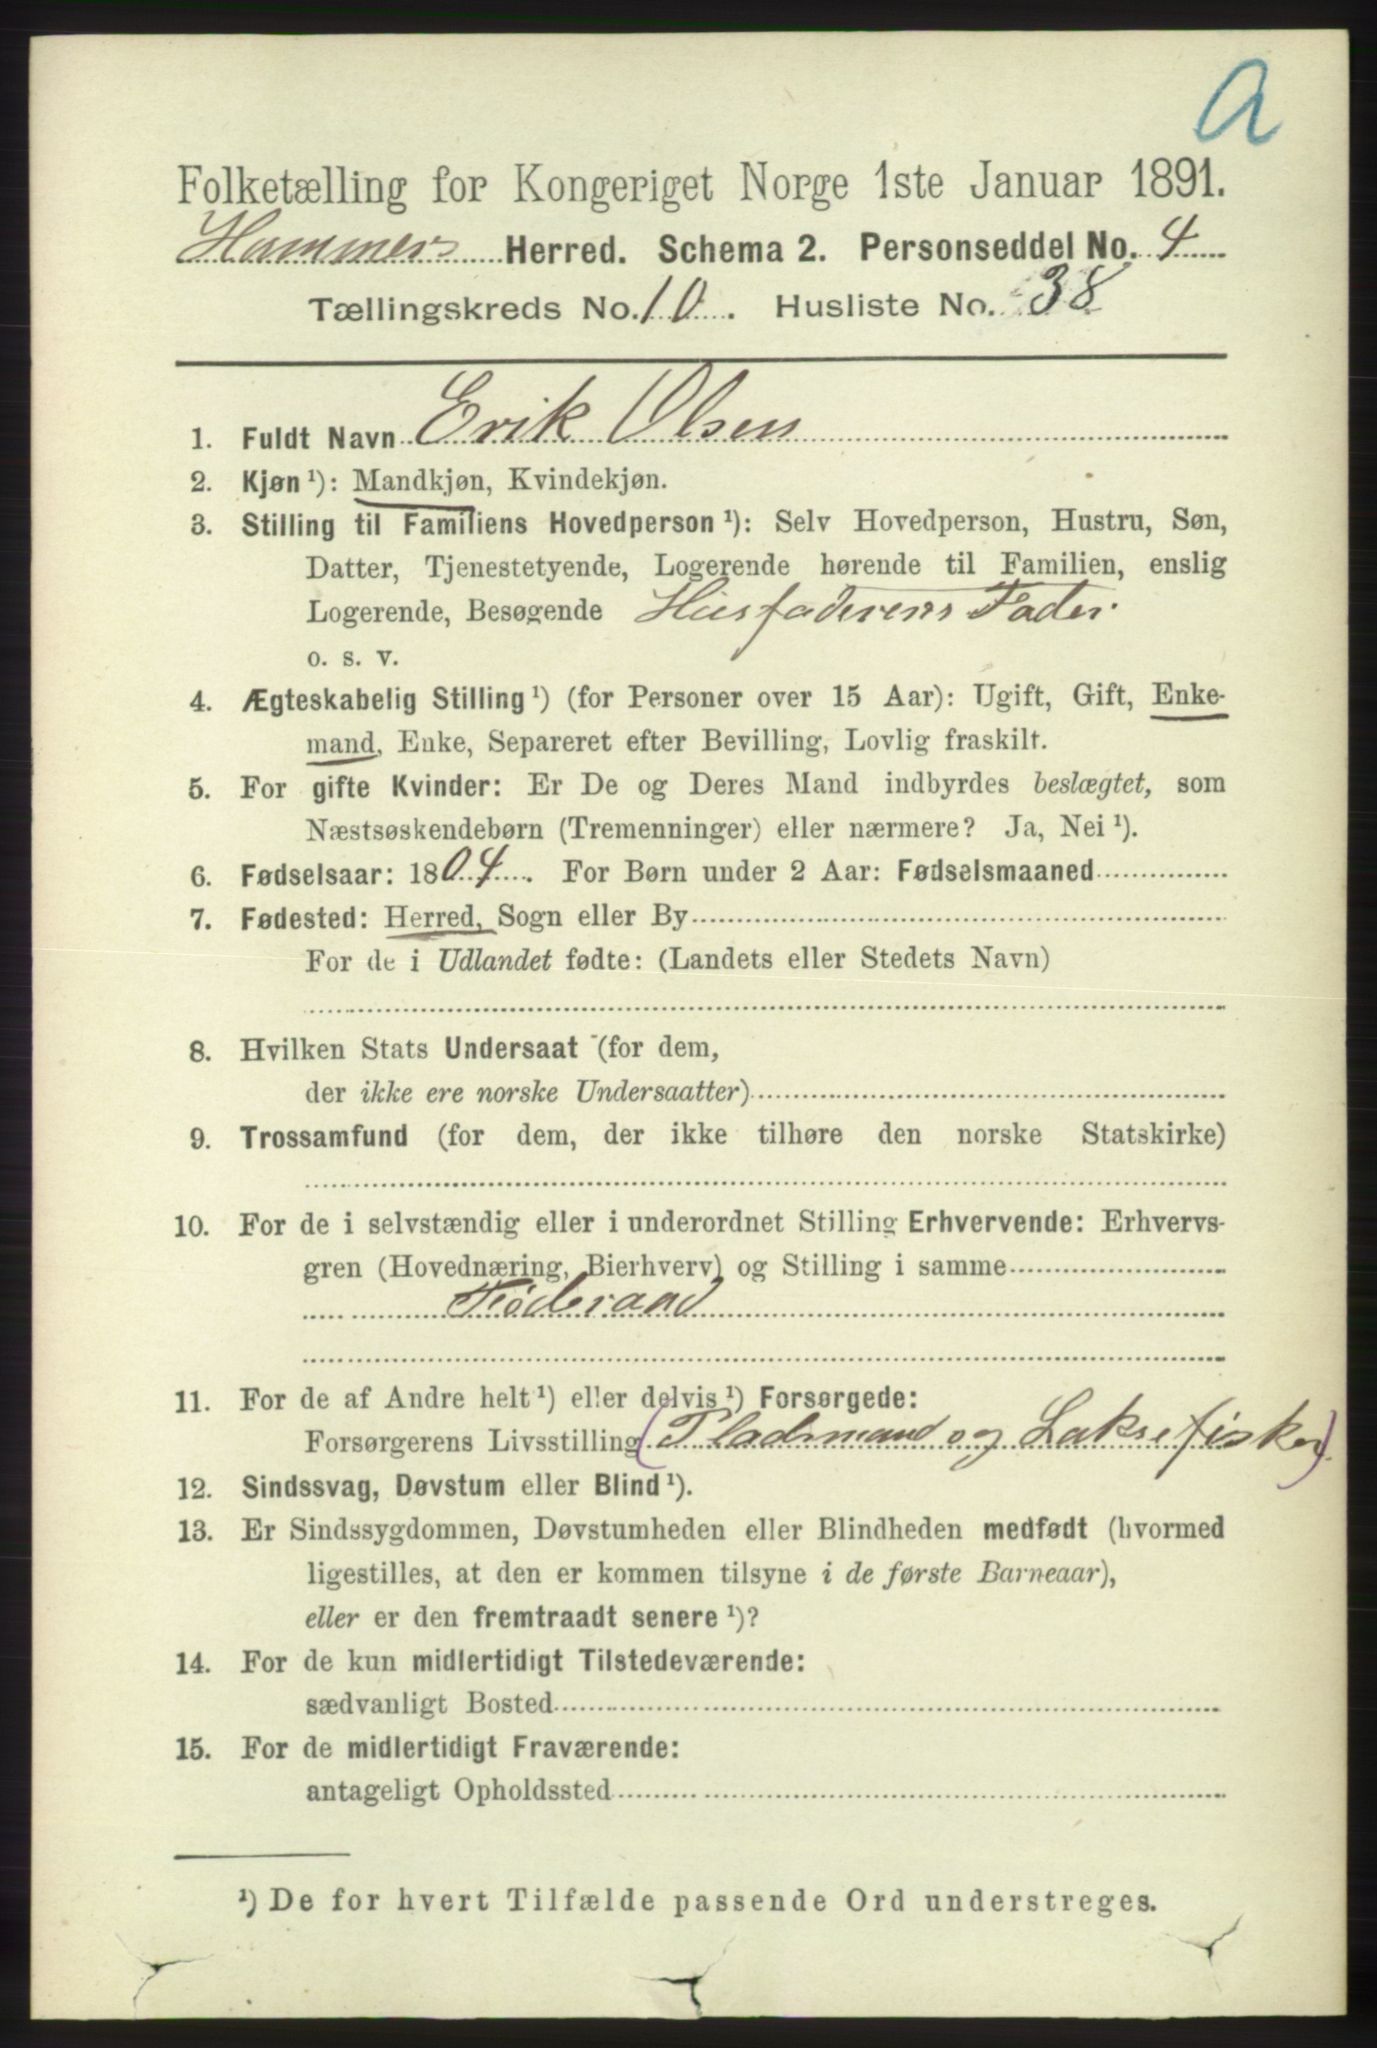 a
Folketælling for Kongeriget Norge 1ste Januar 1891.
Hammers Herred. Schema 2. Personseddel No. 4
Tællingskreds No. 10. Husliste No. 38
1. Fuldt Navn Erik Olsen
2. Kjøn ¹): Mandkjøn, Kvindekjøn.
3. Stilling til Familiens Hovedperson ¹): Selv Hovedperson, Hustru, Søn,
Datter, Tjenestetyende, Logerende hørende til Familien, enslig
Logerende, Besøgende Husfaderens Fader
o. s. v.
4. Ægteskabelig Stilling ¹) (for Personer over 15 Aar): Ugift, Gift, Enke-
mand, Enke, Separeret efter Bevilling, Lovlig fraskilt.
5. For gifte Kvinder: Er De og Deres Mand indbyrdes beslægtet, som
Næstsøskendebørn (Tremenninger) eller nærmere? Ja, Nei ¹).
6. Fødselsaar: 1804. For Børn under 2 Aar: Fødselsmaaned
7. Fødested: Herred, Sogn eller By
For de i Udlandet fødte: (Landets eller Stedets Navn)
8. Hvilken Stats Undersaat (for dem,
der ikke ere norske Undersaatter)
9. Trossamfund (for dem, der ikke tilhøre den norske Statskirke)
10. For de i selvstændig eller i underordnet Stilling Erhvervende: Erhvervs-
gren (Hovednæring, Bierhverv) og Stilling i samme
Føderaad
11. For de af Andre helt ¹) eller delvis ¹) Forsørgede:
Forsørgerens Livsstilling (Pladsmand og Laksefisker)
12. Sindssvag, Døvstum eller Blind ¹).
13. Er Sindssygdommen, Døvstumheden eller Blindheden medfødt (hvormed
ligestilles, at den er kommen tilsyne i de første Barneaar),
eller er den fremtraadt senere ¹)?
14. For de kun midlertidigt Tilstedeværende:
sædvanligt Bosted
15. For de midlertidigt Fraværende:
antageligt Opholdssted
¹) De for hvert Tilfælde passende Ord understreges.